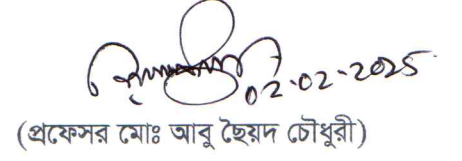 02-02-2025
(প্রফেসর মোঃ আবু ছৈয়দ চৌধুরী)